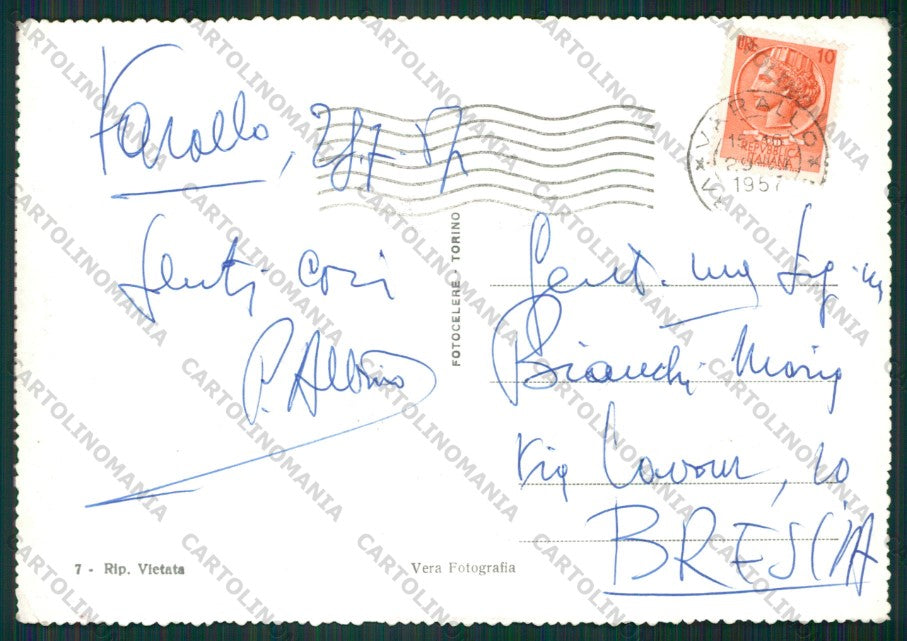 Varallo, 2/7.57
Gentili cari
P. Albino
FOTOCELERE - TORINO
LIRE 10
REPVBBLICA
ITALIANA
VARALLO
1957
Gent.ma Sig.na
Bianchi Maria
Via Cavour, 10
BRESCIA
7 - Rip. Vietata
Vera Fotografia
CARTOLINOMANIA